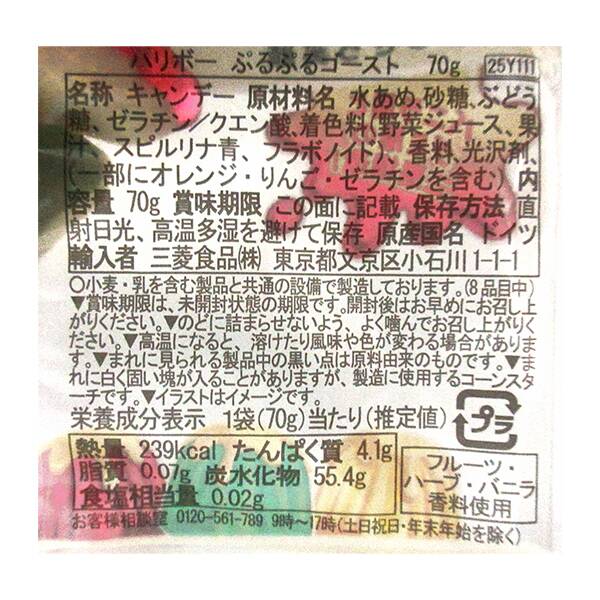 ハリボー ぷるぷるゴースト 70g 25Y111
名称 キャンデー 原材料名 水あめ、砂糖、ぶどう
糖、ゼラチン/クエン酸、着色料(野菜ジュース、果
汁、スピルリナ青、フラボノイド)、香料、光沢剤、
(一部にオレンジ・りんご・ゼラチンを含む) 内
容量 70g 賞味期限 この面に記載 保存方法 直
射日光、高温多湿を避けて保存 原産国名 ドイツ
輸入者 三菱食品(株) 東京都文京区小石川1-1-1
○小麦・乳を含む製品と共通の設備で製造しております。(8品目中)
▼賞味期限は、未開封状態の期限です。開封後はお早めにお召し上
がりください。▼のどに詰まらせないよう、よく噛んでお召し上がりく
ださい。▼高温になると、溶けたり風味や色が変わる場合がありま
す。▼まれに見られる製品中の黒い点は原料由来のものです。▼ま
れに白く固い塊が入ることがありますが、製造に使用するコーンスタ
ーチです。▼イラストはイメージです。
栄養成分表示 1袋(70g)当たり(推定値)
プラ
熱量 239kcal たんぱく質 4.1g
脂質 0.07g 炭水化物 55.4g
食塩相当量 0.02g
フルーツ・
ハーブ・バニラ
香料使用
お客様相談室 0120-561-789 9時〜17時(土日祝日・年末年始を除く)